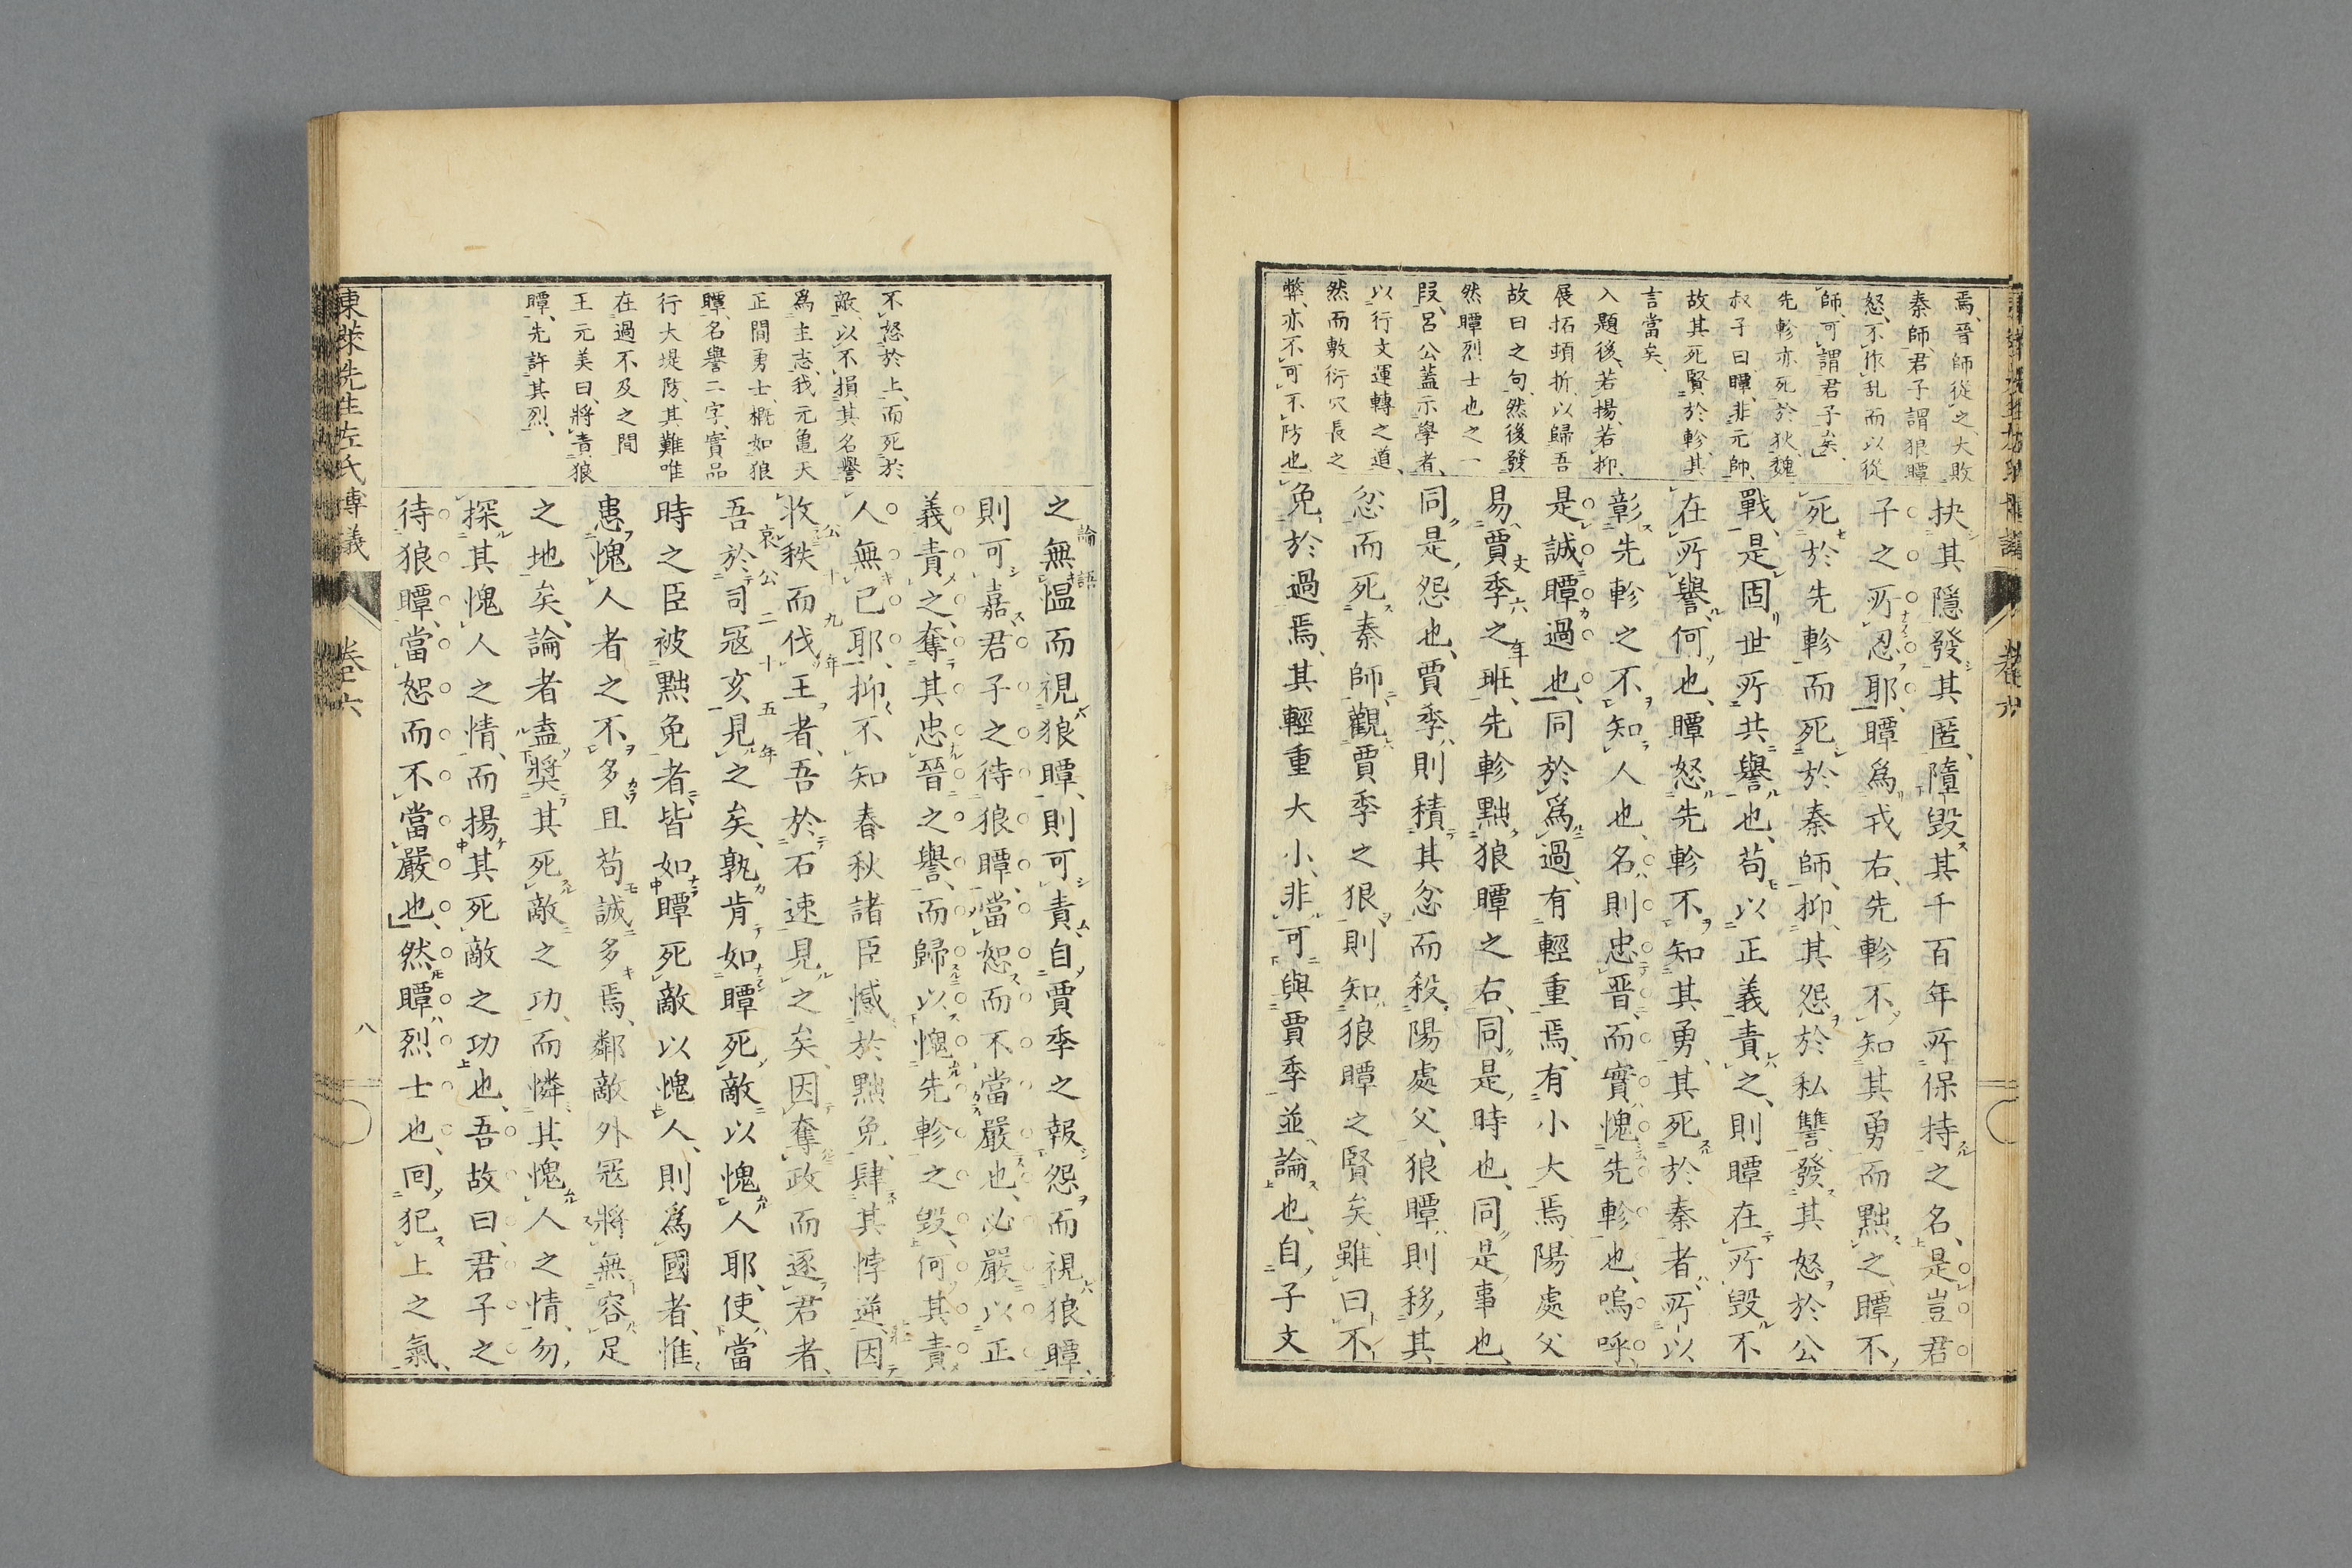 焉、晉師從之、大敗
秦師、君子謂狼瞫
怒、不作乱而以從
師、可謂君子矣、
先軫亦死於狄、魏
叔子曰、瞫、非元師、
故其死賢於軫、其
言當矣、
入題後、若揚、若抑、
展拓頓折、以歸吾
故曰之句、然後發
然瞫烈士也之一
段、呂公蓋示學者、
以行文運轉之道、
然而敷衍冗長之
弊、亦不可不防也、
抉其隱發其匿、隳毀其千百年所保持之名、是豈君
子之所忍耶、瞫爲戎右、先軫不知其勇而黜之、瞫不
死於先軫而死於秦師、抑其怨於私讐、發其怒於公
戰、是固世所共譽也、苟以正義責之、則瞫在所毀不
在所譽、何也、瞫怒先軫不知其勇、其死於秦者、所以
彰先軫之不知人也、名則忠晋、而實愧先軫也、嗚呼、
是誠瞫過也、同於爲過、有輕重焉、有小大焉、陽處父
易賈季之班、先軫黜狼瞫之右、同是時也、同是事也、
同是怨也、賈季則積其忿而殺陽處父、狼瞫則移其
忿而死秦師、觀賈季之狠、則知狼瞫之賢矣、雖曰不
免於過焉、其輕重大小、非可與賈季並論也、自子文
卷六
不怒於上、而死於
敵、以不損其名譽
爲主志、我元亀天
正間勇士、概如狼
瞫、名譽二字、實品
行大堤防、其難唯
在過不及之間
王元美曰、將責狼
瞫、先許其烈、
之無慍而視狼瞫、則可責自賈季之報怨而視狼瞫、
論語
則可嘉君子之待狼瞫、當恕而不當嚴也、必嚴以正
義責之、奪其忠晉之譽、而歸以愧先軫之毀、何其責
人無已耶、抑不知春秋諸臣憾於黜免、肆其悖逆、因
收秩而伐王者、吾於石速見之矣、因奪政而逐君者、
公十九年
吾於司冦亥見之矣、孰肯如瞫死敵以愧人耶、使當
哀公二十五年
時之臣被黜免者、皆如瞫死敵以愧人、則爲國者、惟
患愧人者之不多且苟誠多焉、鄰敵外冦將無容足
之地矣、論者盍奬其死敵之功、而憐其愧人之情、勿
探其愧人之情、而揚其死敵之功也、吾故曰、君子之
待狼瞫、當恕而不當嚴也、然瞫烈士也、同犯上之氣、
文六年
東萊先生左氏博議
卷六
八